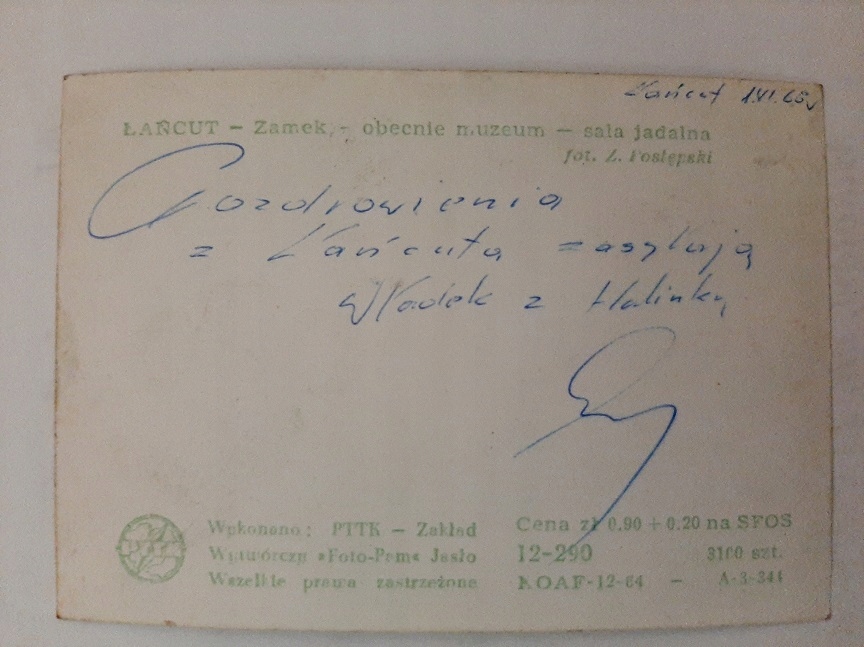 Łańcut 1.VI.65r
ŁAŃCUT - Zamek, - obecnie muzeum - sala jadalna
fot. Z. Postępski
Pozdrowienia
z Łańcuta zasyłają
Władek z Halinką
PTTK
Wykonano: PTTK - Zakład
Wytwórczy «Foto-Pam» Jasło
Wszelkie prawa zastrzeżone
Cena zł 0.90 + 0.20 na SFOS
12-290 3100 szt.
KOAF-12-64 - A-3-344